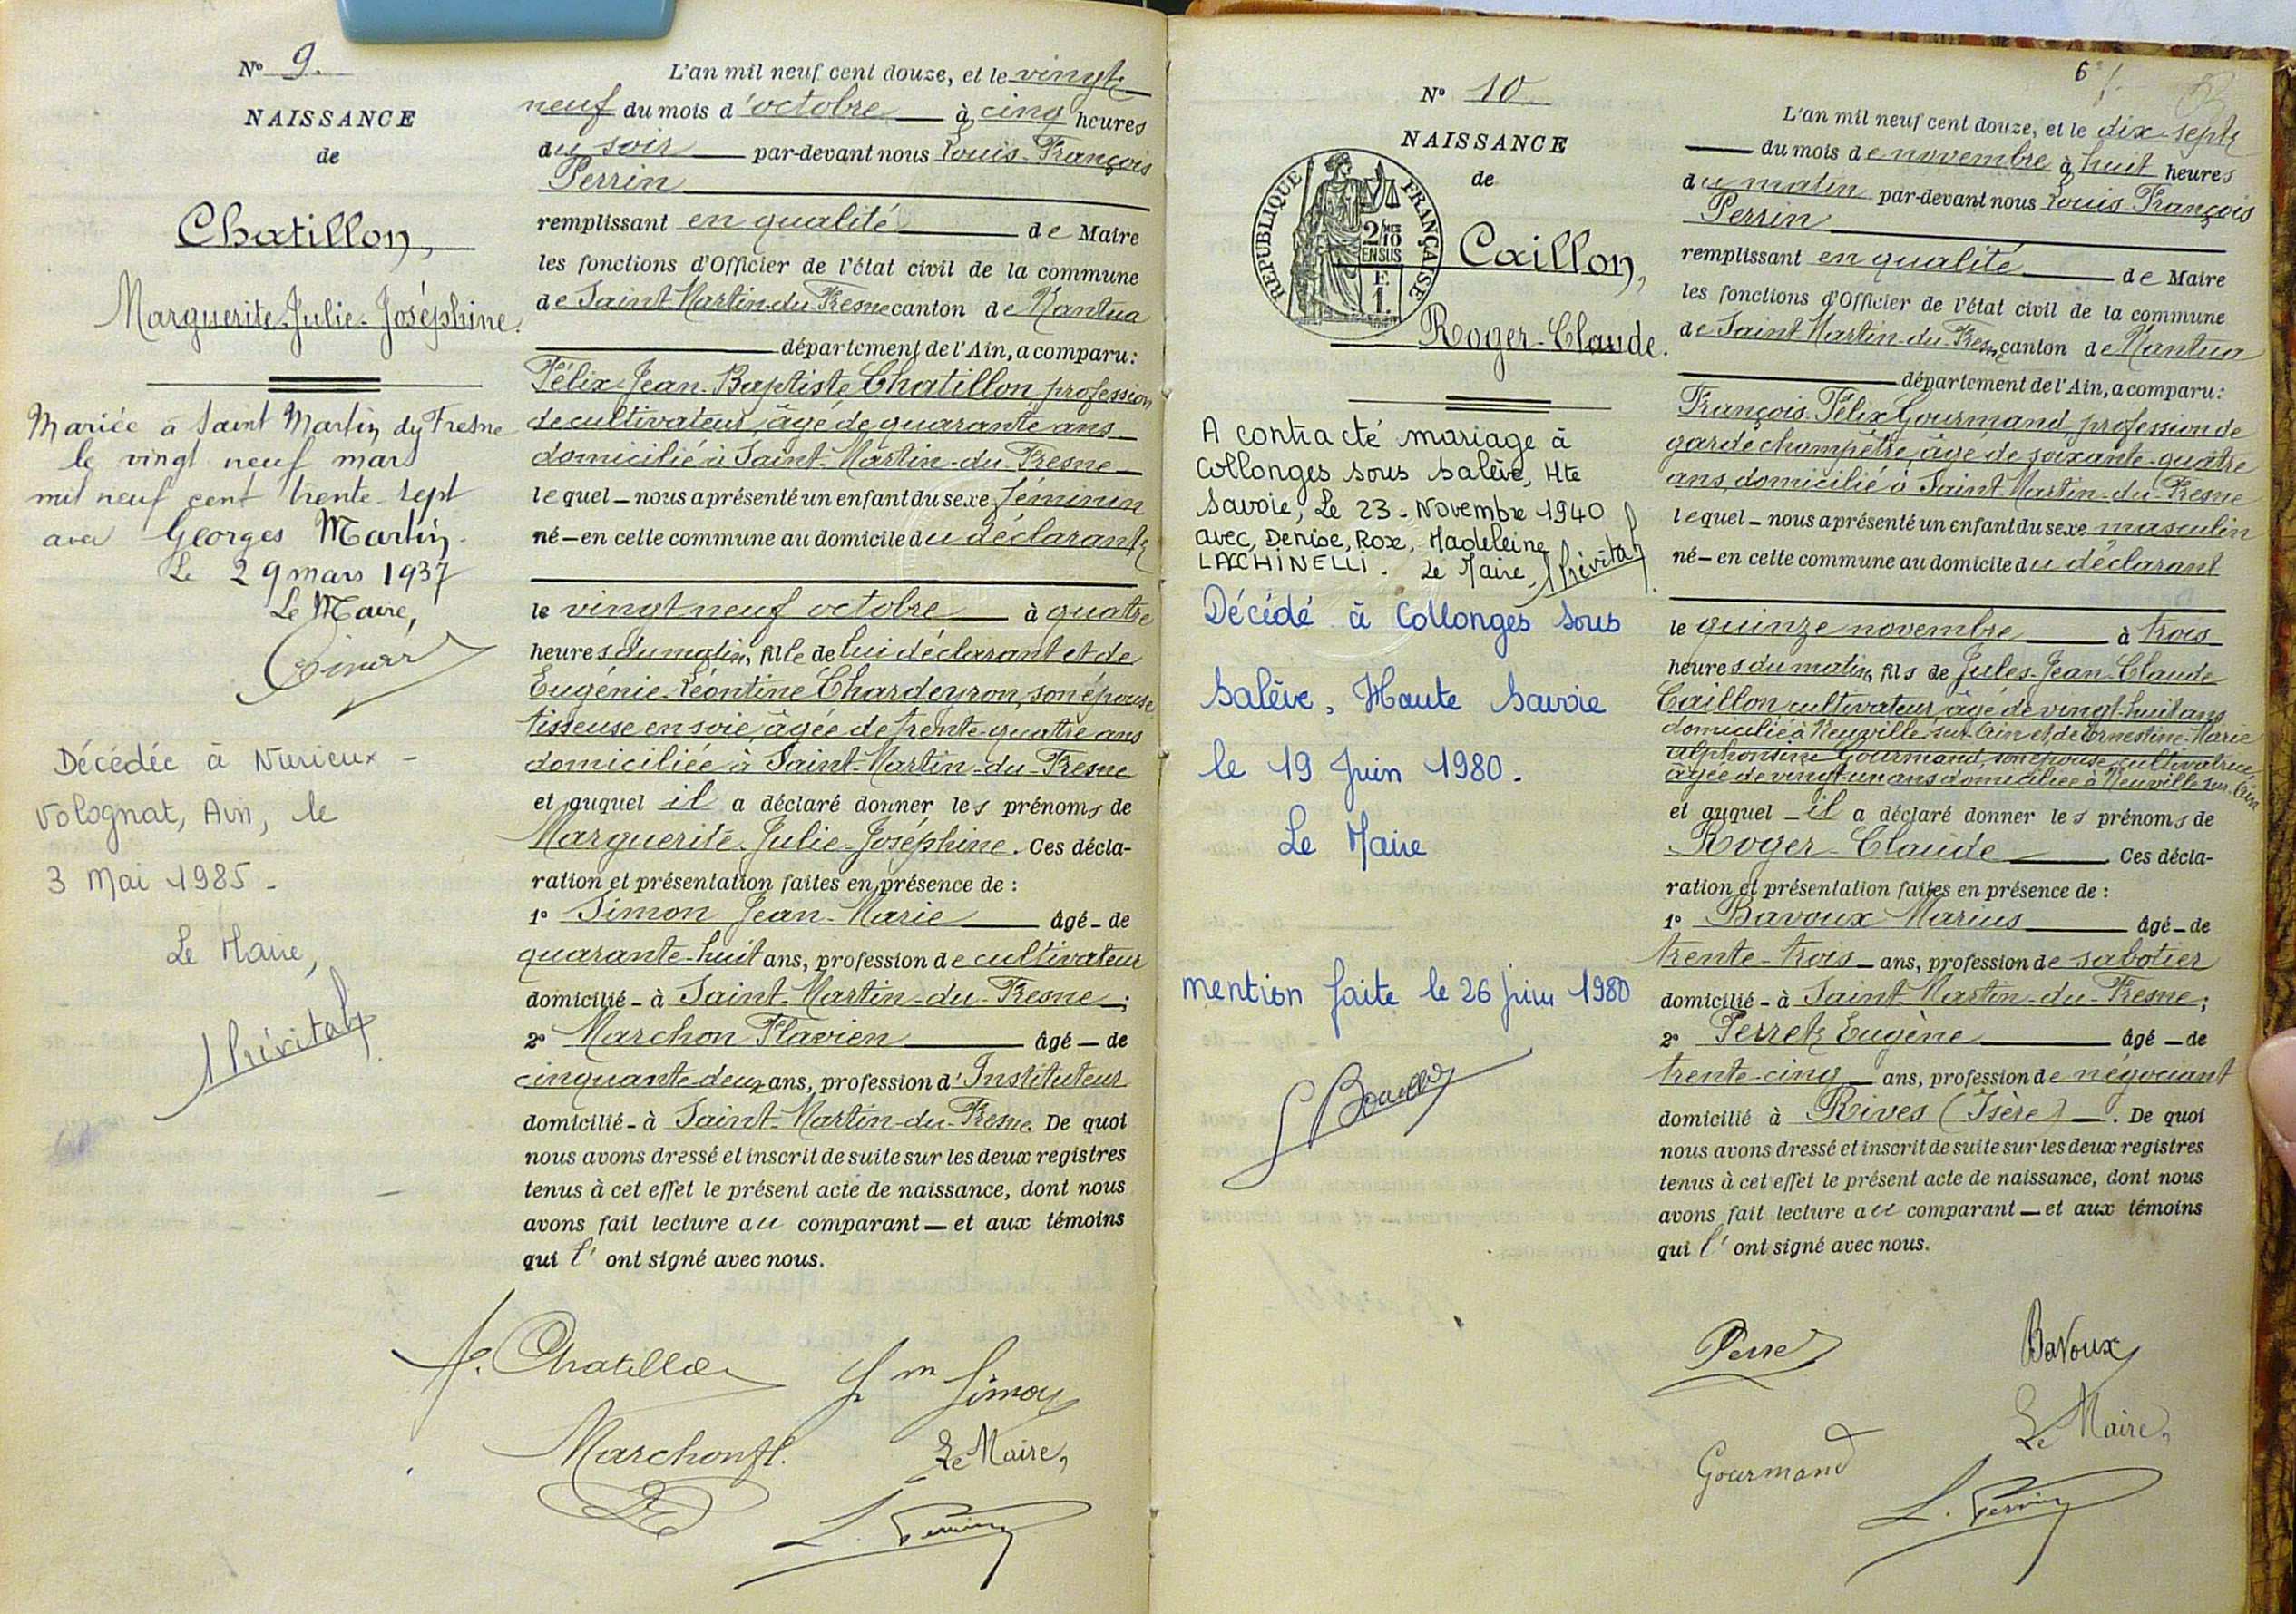 N° 9.
NAISSANCE
de
Chatillon,
Marguerite-Julie-Joséphine.
Mariée à Saint Martin du Fresne
le vingt neuf mars
mil neuf cent trente-sept
avec Georges Martin.
Le 29 mars 1937
Le Maire,
Décédée à Nurieux-
Volognat, Ain, le
3 Mai 1985-
Le Maire,
L'an mil neuf cent douze, et le vingt
neuf du mois d'octobre à cinq heures
du soir par-devant nous Louis-François
Perrin
remplissant en qualité de Maire
les fonctions d'Officier de l'état civil de la commune
de Saint-Martin-du-Fresne canton de Nantua
département de l'Ain, a comparu:
Félix-Jean-Baptiste Chatillon profession
de cultivateur, âgé de quarante ans
domicilié à Saint-Martin-du-Fresne
lequel - nous a présenté un enfant du sexe féminin
né - en cette commune au domicile du déclarant
le vingt neuf octobre à quatre
heures du matin, fille de lui déclarant et de
Eugénie-Léontine Chardeyron, son épouse
tisseuse en soie, âgée de trente-quatre ans
domiciliée à Saint-Martin-du-Fresne
et auquel il a déclaré donner les prénoms de
Marguerite-Julie-Joséphine. Ces décla-
ration et présentation faites en présence de :
1° Simon Jean-Marie âgé - de
quarante-huit ans, profession de cultivateur
domicilié - à Saint-Martin-du-Fresne ;
2° Marchon Flavien âgé - de
cinquante-deux ans, profession d'Instituteur
domicilié - à Saint-Martin-du-Fresne. De quoi
nous avons dressé et inscrit de suite sur les deux registres
tenus à cet effet le présent acte de naissance, dont nous
avons fait lecture au comparant - et aux témoins
qui l'ont signé avec nous.
f. Chatillon
Jn Simon
Marchon fl.
Le Maire,
L. Perrin
6
N° 10
NAISSANCE
de
RÉPUBLIQUE FRANÇAISE
2/10
EN SUS
1 F.
Caillon,
Roger-Claude.
A contracté mariage à
Collonges sous Salève, Hte
Savoie, Le 23-Novembre 1940
avec, Denise, Rose, Madeleine
LACCHINELLI. Le Maire,
Décédé à Collonges sous
Salève, Haute Savoie
le 19 Juin 1980.
Le Maire
mention faite le 26 juin 1980
L'an mil neuf cent douze, et le dix-sept
du mois de novembre à huit heures
du matin par-devant nous Louis-François
Perrin
remplissant en qualité de Maire
les fonctions d'Officier de l'état civil de la commune
de Saint-Martin-du-Fresne canton de Nantua
département de l'Ain, a comparu:
François-Félix Gourmand profession de
garde champêtre, âgé de soixante-quatre
ans, domicilié à Saint-Martin-du-Fresne
lequel - nous a présenté un enfant du sexe masculin
né - en cette commune au domicile du déclarant
le quinze novembre à trois
heures du matin, fils de Jules-Jean-Claude
Caillon cultivateur, âgé de vingt-huit ans
domicilié à Neuville-sur-Ain et de Ernestine-Marie
Alphonsine Gourmand, son épouse, cultivatrice,
âgée de vingt-un ans domiciliée à Neuville-sur-Ain
et auquel - il a déclaré donner les prénoms de
Roger-Claude Ces décla-
ration et présentation faites en présence de :
1° Bavoux Marius âgé - de
trente-trois - ans, profession de sabotier
domicilié - à Saint-Martin-du-Fresne ;
2° Perret Eugène âgé - de
trente-cinq ans, profession de négociant
domicilié à Rives (Isère) -. De quoi
nous avons dressé et inscrit de suite sur les deux registres
tenus à cet effet le présent acte de naissance, dont nous
avons fait lecture au comparant - et aux témoins
qui l'ont signé avec nous.
Perret
Bavoux
Gourmand
Le Maire,
L. Perrin